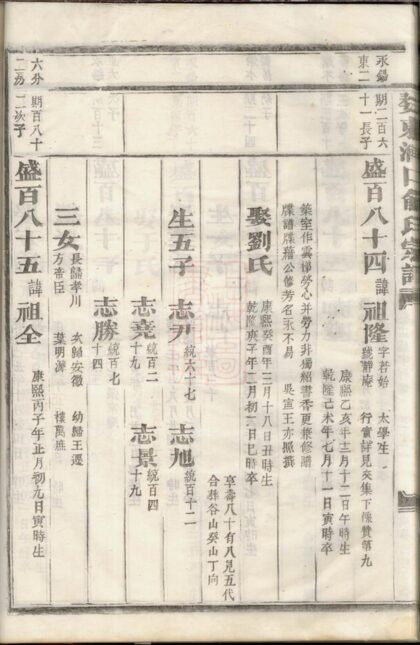 婺東海口俞氏宗譜
永錫
東二
期二百六
十一長子
盛百八十四 諱 祖隆
字若始 太學生
號靜庵 行實詳見矣集下像贊第九
康熙乙亥年三月十二日午時生
乾隆己未年七月十一日寅時卒
築室作雲梯勞心并勞力非獨紹書香更兼修譜
牒譜牒藉公修芳名永不易 吳宣王亦臨撰
娶劉氏
康熙癸酉年三月十八日丑時生
乾隆庚子年二月初二日巳時卒
享壽八十有八見五代
合葬谷山癸山丁向
生五子 志尹 統六十七 志旭 統百十二
志堯 統百二十九 志景 統百四十九
志勝 統百七十四
三女
長歸孝川方帝臣
次歸安徽葉明源
幼歸王遷樓萬應
六分
二房
期百八十
二次子
盛百八十五 諱 祖全
康熙丙子年正月初九日寅時生